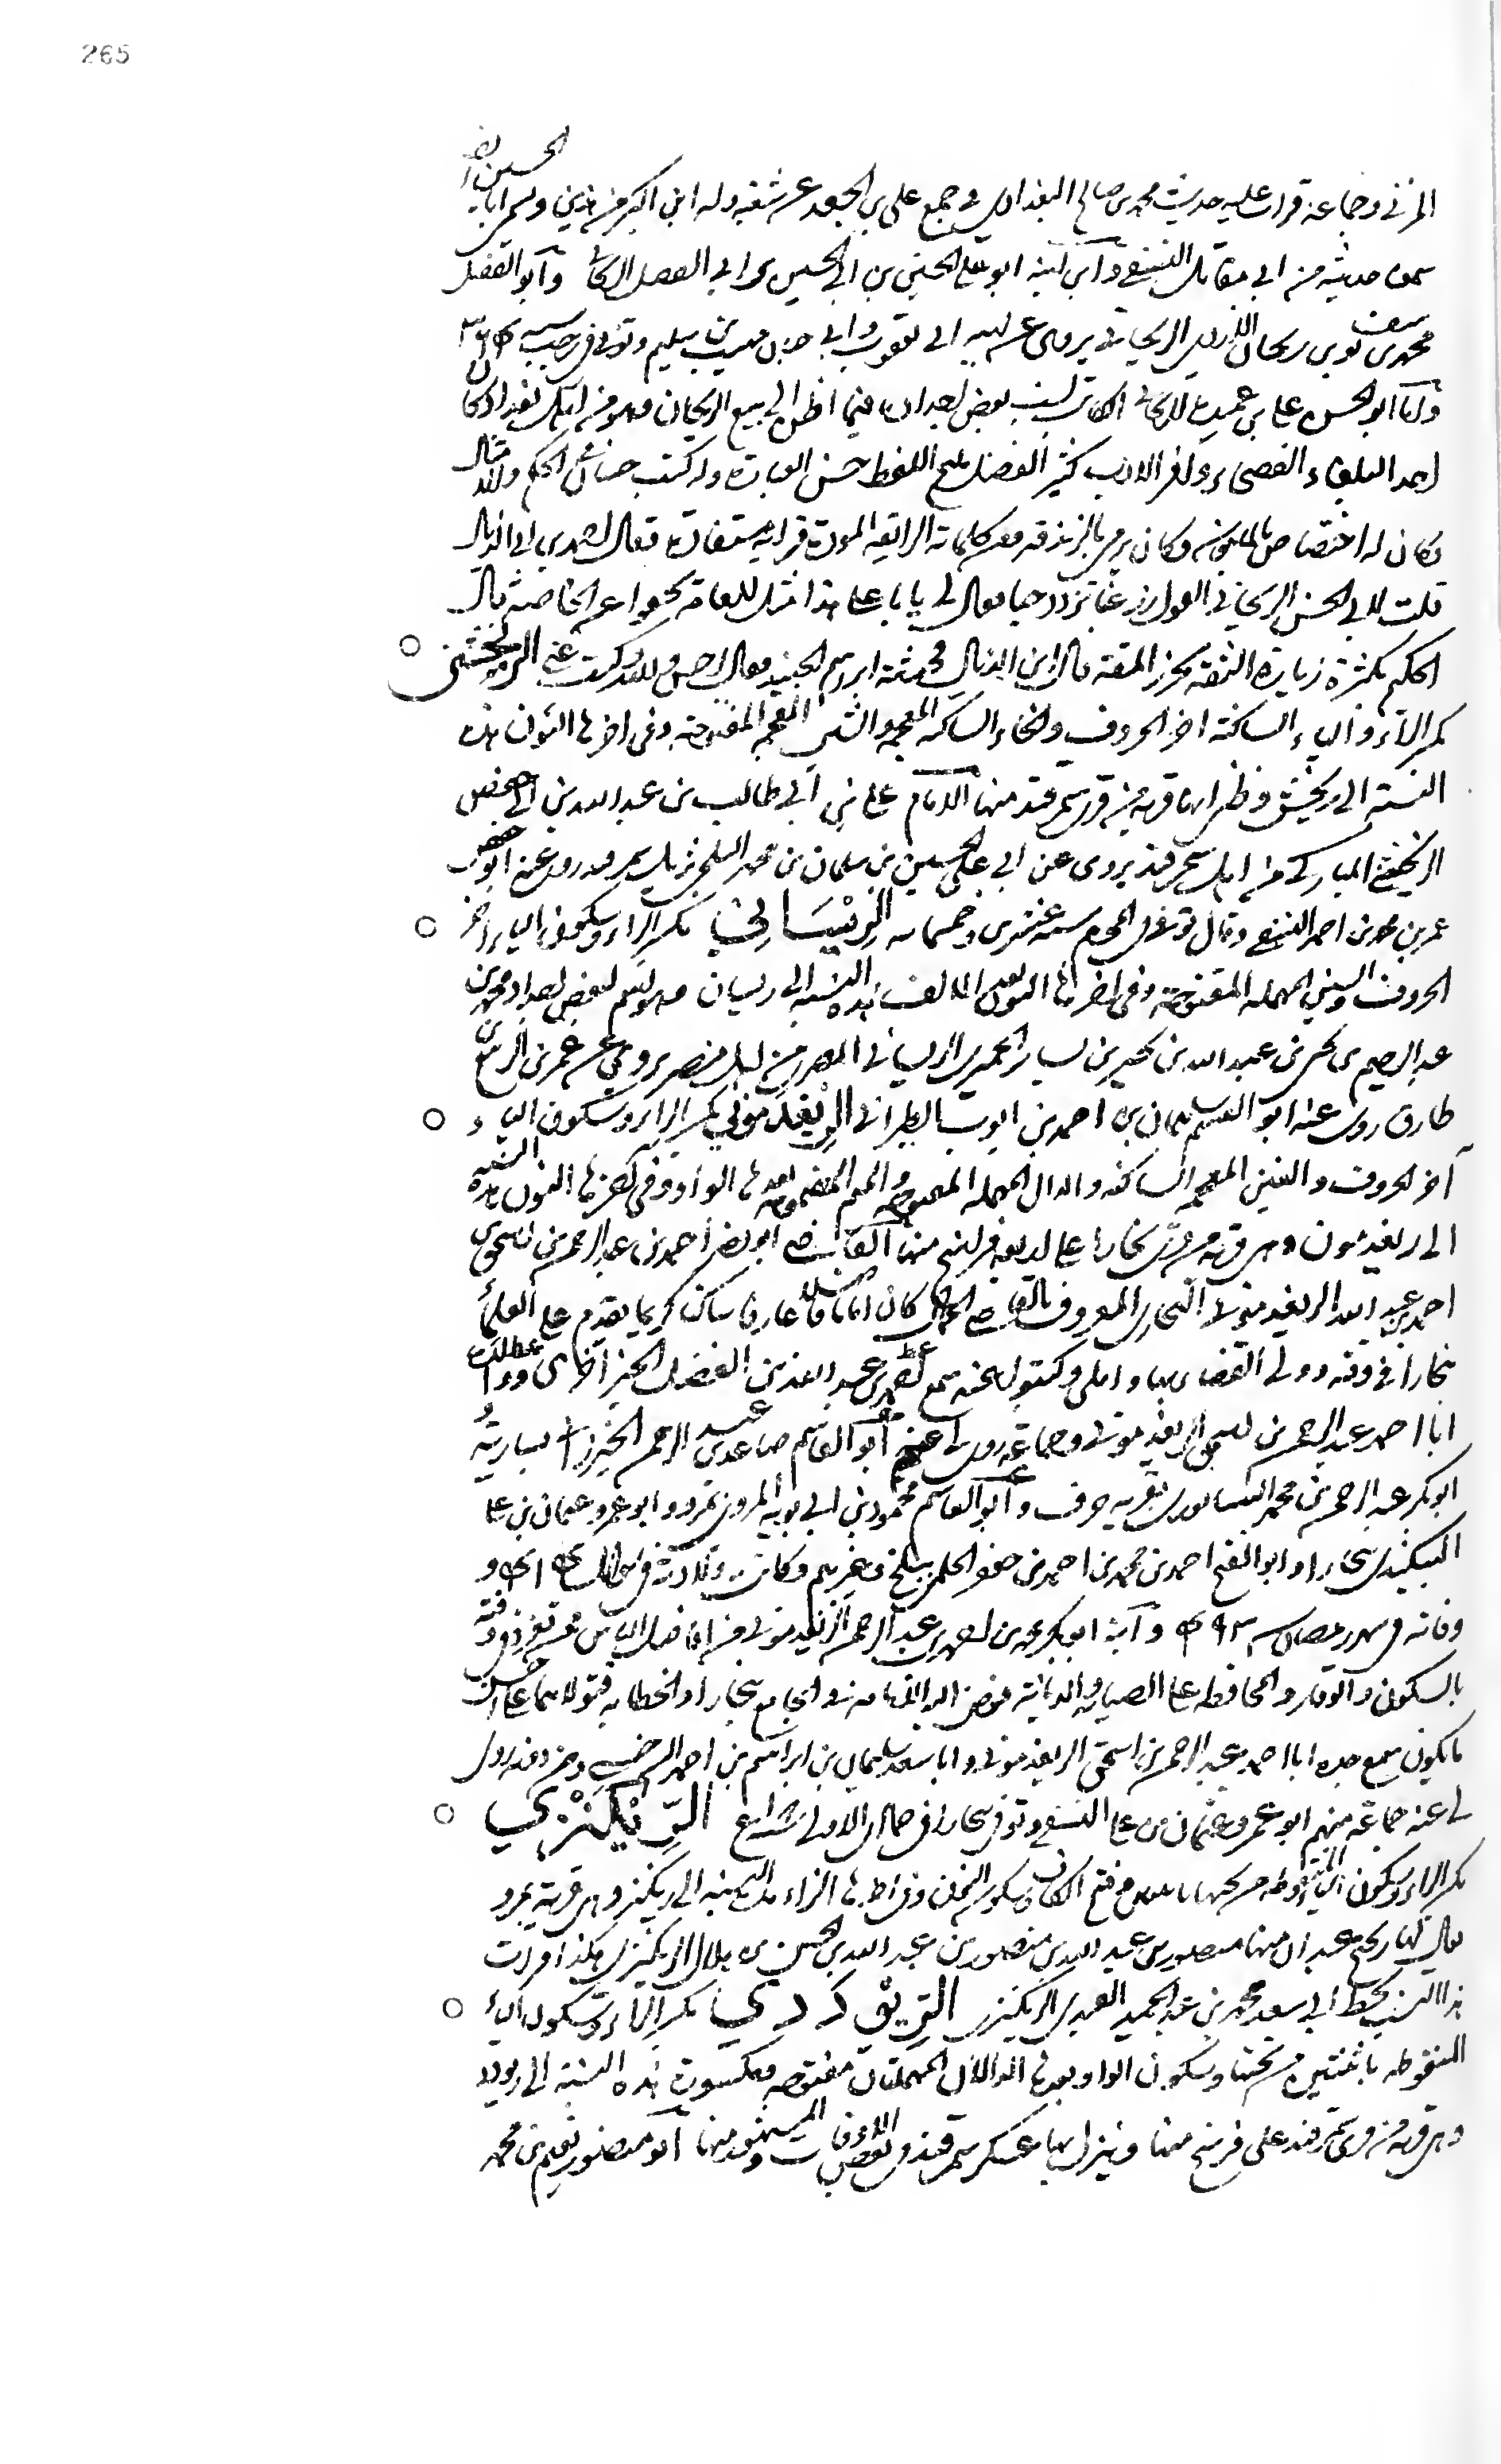 265
المزني وجماعة قرأت عليه حديث محمد بن صالح البغدادي في جمع علي بن الجعد عن شعبة وله ابن اكبر من هذين وسمر ابا الحسين
سمع حديثه من ابي مقاتل النسفي وابن ابنه ابو علي الحسين بن ابي الحسين بن ابي الفضل الريحاني وابو الفضل
محمد بن يوسف بن ريحان الازدي الريحاني يروي عن ابيه ابي يعقوب وابي حسان مهيب بن سليم وتوفي في رجب سنة
واما ابو الحسن علي بن عبيدة الريحاني الكاتب لنسب بعض اجداده فيما اظن الى بيع الريحان وهو من اهل بغداد كان
احد البلغاء الفصحاء وافر الادب كثير الفضل مليح اللفظ حسن العبارة وله كتب حسان في الحكم والامثال
وكان له اختصاص بالمأمون وكان يرمى بالزندقة فمن كلماته الرائقة المروية قرابة مستفادة وقال احمد بن ابي الذيال
قلت لابي الحسن الريحاني القول زر غبا تزدد حبا فقال لي يا با علي هذا مثل للعامة يجفوا عن الخاصة قال
الحكم بكثرة زيارة الثقة تحرز المقة قال ابن ابي الذيال فحدثت ابراهيم بن الجنيد فقال احسن والله وكتب عني الريخشني
بكسر الراء والياء الساكنة اخر الحروف والخاء الساكنة المعجمة والشين المعجمة المفتوحة وفي اخرها النون هذه
النسبة الى ريخشن وظني انها قرية من قرى سمرقند منها الامام علي بن ابي طالب بن عبد الله بن ابي حفص
الريخشني المباركي من اهل سمرقند يروي عن ابي علي الحسين بن سلمان بن محمد البلخي نزيل سمرقند روى عنه ابو حفص
عمر بن محمد بن احمد النسفي وقال توفي في المحرم سنة عشرين وخمسمائة الرِيْسَانِي بكسر الراء وسكون الياء اخر
الحروف والسين المهملة المفتوحة وفي اخرها النون بعد الالف هذه النسبة الى ريسان وهو اسم لبعض اجداد محمد بن
عبد الرحيم بن بحير بن عبد الله بن بحير بن يسار الحميري الريساني المصري من اهل مصر يروي عن عمر بن الربيع بن
طارق روى عنه ابو القسم سليمان بن احمد بن ايوب الطبراني الرِيْغَدَمُونِي بكسر الراء وسكون الياء
آخر الحروف والغين المعجمة الساكنة والدال المهملة المفتوحة والميم المضمومة بعدها الواو وفي اخرها النون هذه النسبة
الى ريغدمون وهي قرية من قرى بخارا على اربعة فراسخ منها القاضي ابو نصر احمد بن عبد الرحمن بن اسحق بن
احمد بن عبد الله الريغدموني البخاري المعروف بالقاضي الجمال كان اماما فاضلا عارفا ساكنا كريما يقدم على العلماء
بخارا في وقته وولي القضاء بها واملى وكتبوا عنه سمع محمد بن عبد الله بن الفضل الخيزاخزي ووالده
ابا احمد عبد الرحمن بن اسحق الريغدموني وجماعة روى لي عنه ابو القاسم صاعد بن عبد الرحمن الخيزراني بسارية
ابو بكر عبد الرحمن بن محمد النيسابوري بقرية حرف وابو القاسم محمود بن ابي توبة المروزي بمرو وابو عمرو عثمان بن علي
البيكندي ببخارا وابو الفتح احمد بن محمد بن احمد بن جعفر الحلمي ببلخ وغيرهم وكانت ولادته في شوال سنة
وفاته في شهر رمضان سنة ٤٩٣ وابنه ابو بكر محمد بن احمد بن عبد الرحمن الريغدموني من افاضل الناس تفرد في وقته
بالسكون والوقار والمحافظة على الصيانة والديانة فوض اليه الامامة في الجامع ببخارا والخطابة فتولاهما على احسن
ما يكون سمع جده ابا احمد عبد الرحمن بن اسحق الريغدموني وابا سعد سليمان بن ابراهيم بن احمد السرخسي ومن دونه روى
لي عنه جماعة منهم ابو عمرو عثمان بن علي النسفي وتوفي ببخارا في جمادى الاولى سنة الرِّيْكَنْزِي
بكسر الراء وسكون الياء المنقوطة من تحتها باثنتين وفتح الكاف وسكون النون وفي اخرها الزاء هذه النسبة الى ريكنز وهي قرية بمرو
يقال لها ريكنج عبدان منها منصور بن عبد الله بن منصور بن عبد الله بن الحسن بن بلال الريكنزي هكذا قرات
هذا النسب بخط ابي سعد محمد بن عبد الحميد العبدي الريكنزي الرِيْوْدَدِي بكسر الراء وسكون الياء
المنقوطة باثنتين من تحتها وسكون الواو بعدها الدالان المهملتان مفتوحة ومكسورة هذه النسبة الى ريودد
وهي قرية من قرى سمرقند على فرسخ منها وينزل بها عسكر سمرقند في بعض الاوقات والمشهور منها ابو منصور نعيم بن محمد